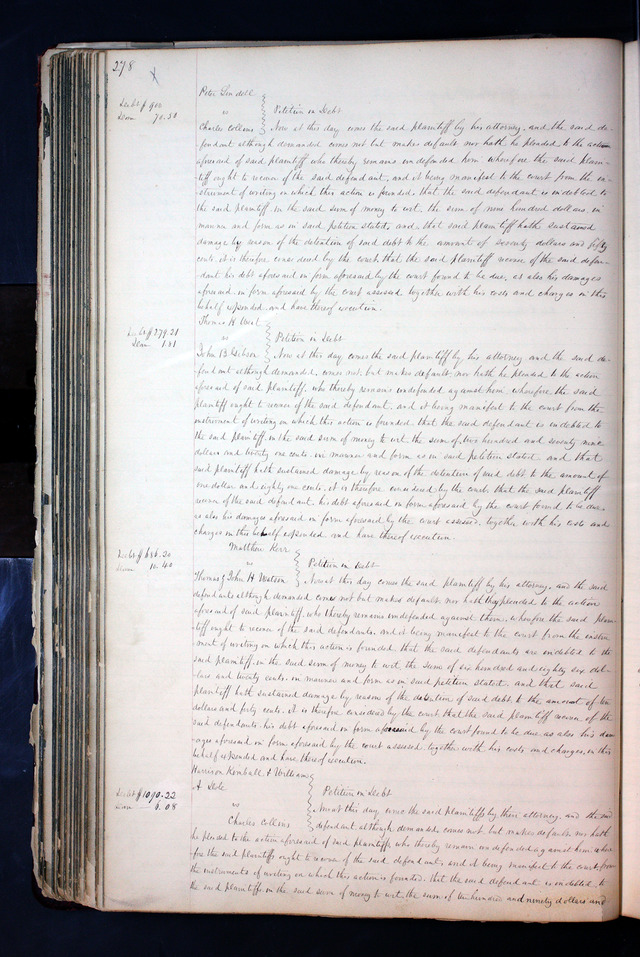 278
Peter Lindell
vs
Petition in Debt
Debt $ 900
Dam 70.50
Charles Collins Now at this day comes the said plaintiff by his attorney, and the said de-
fendant although demanded comes not but makes default nor hath he pleaded to the action
aforesaid of said plaintiff who thereby remains undefended herein wherefore the said plain-
tiff ought to recover of the said defendant, and it being manifest to the court from the in-
strument of writing on which this action is founded, that the said defendant is indebted to
the said plaintiff in the said sum of money to wit, the sum of nine hundred dollars, in
manner and form as in said petition stated, and that said plaintiff hath sustained
damage by reason of the detention of said debt to the amount of seventy dollars and fifty
cents, it is therefore considered by the court that the said plaintiff recover of the said defen-
dant his debt aforesaid in form aforesaid by the court found to be due, as also his damages
aforesaid in form aforesaid by the court assessed together with his costs and charges in this
behalf expended and have thereof execution.
Thomas H West
vs
Petition in Debt
Debt $ 279.21
Dam 1.81
John B Gibson Now at this day comes the said plaintiff by his attorney and the said de-
fendant although demanded, comes not, but makes default, nor hath he pleaded to the action
aforesaid of said plaintiff, who thereby remains undefended against him, wherefore the said
plaintiff ought to recover of the said defendant, and it being manifest to the court from the
instrument of writing on which this action is founded, that the said defendant is indebted to
the said plaintiff in the said sum of money to wit the sum of two hundred and seventy nine
dollars and twenty one cents, in manner and form as in said petition stated and that
said plaintiff hath sustained damage by reason of the detention of said debt to the amount of
one dollar and eighty one cents, it is therefore considered by the court that the said plaintiff
recover of the said defendant, his debt aforesaid in form aforesaid by the court found to be due
as also his damages aforesaid in form aforesaid by the court assessed, together with his costs and
charges in this behalf expended and have thereof execution.
Matthew Kerr
vs
Petition in Debt
Debt $ 686.20
Dam 10.40
Thomas & John H Watson Now at this day comes the said plaintiff by his attorney, and the said
defendants although demanded comes not but makes default, nor hath they pleaded to the action
aforesaid of said plaintiff, who thereby remains undefended against them, wherefore the said plain-
tiff ought to recover of the said defendants, and it being manifest to the court from the instru-
ment of writing on which this action is founded, that the said defendants are indebted to the
said plaintiff, in the said sum of money to wit the sum of six hundred and eighty six dol-
lars and twenty cents, in manner and form as in said petition stated, and that said
plaintiff hath sustained damage by reason of the detention of said debt to the amount of ten
dollars and forty cents. It is therefore considered by the court that the said plaintiff recover of the
said defendants, his debt aforesaid in form aforesaid by the court found to be due as also his dam-
ages aforesaid in form aforesaid by the court assessed, together with his costs and charges, in this
behalf expended and have thereof execution.
Harrison Kimball & William
H Dole
Petition in Debt
Debt $ 1090.22
Dam 6.08
vs
Now at this day, come the said plaintiffs by their attorney, and the said
Charles Collins defendant, although demanded, comes not, but makes default nor hath
he pleaded to the action aforesaid of said plaintiffs who thereby remain undefended against him, where-
fore the said plaintiffs ought to recover of the said defendant, and it being manifest to the court from
the instruments of writing on which this action is founded, that the said defendant is indebted, to
the said plaintiffs in the said sum of money to wit, the sum of ten hundred and ninety dollars and